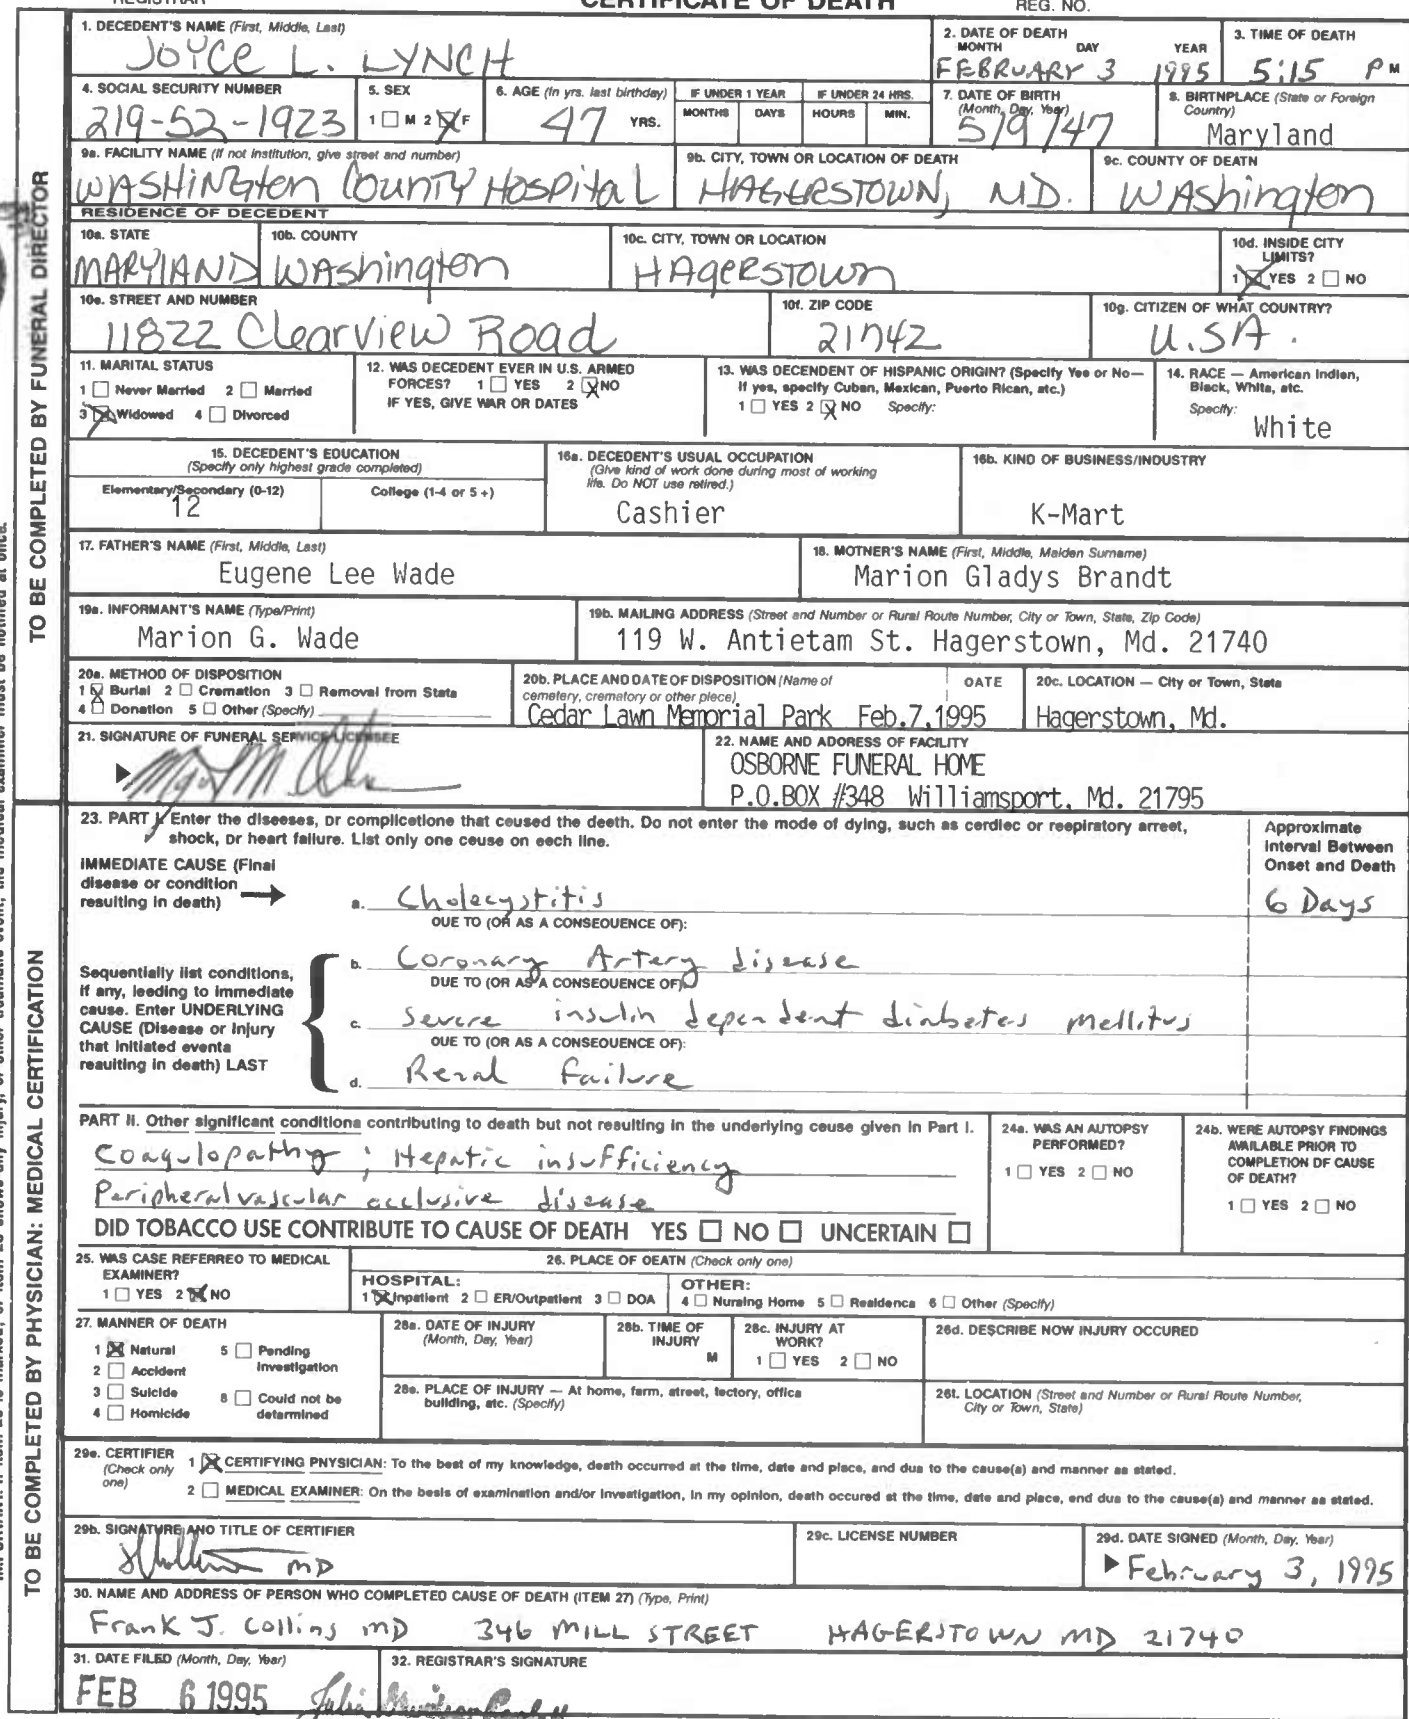 REGISTRAR CERTIFICATE OF DEATH REG. NO.
TO BE COMPLETED BY FUNERAL DIRECTOR
1. DECEDENT'S NAME (First, Middle, Last)
JOYCE L. LYNCH
2. DATE OF DEATH
MONTH DAY YEAR
FEBRUARY 3 1995
3. TIME OF DEATH
5:15 P M
4. SOCIAL SECURITY NUMBER
219-52-1923
5. SEX
1 ☐ M 2 ☒ F
6. AGE (In yrs. last birthday)
47 YRS.
IF UNDER 1 YEAR
MONTHS DAYS
IF UNDER 24 HRS.
HOURS MIN.
7. DATE OF BIRTH
(Month, Day, Year)
5/9/47
8. BIRTNPLACE (State or Foreign
Country)
Maryland
9a. FACILITY NAME (If not institution, give street and number)
WASHINGton County Hospital
9b. CITY, TOWN OR LOCATION OF DEATH
HAGERSTOWN, MD.
9c. COUNTY OF DEATH
WAshington
RESIDENCE OF DECEDENT
10a. STATE
MARYlAND
10b. COUNTY
WAshington
10c. CITY, TOWN OR LOCATION
HAgeRSTOWn
10d. INSIDE CITY
LIMITS?
1 ☒ YES 2 ☐ NO
10e. STREET AND NUMBER
11822 Clearview Road
10f. ZIP CODE
21742
10g. CITIZEN OF WHAT COUNTRY?
U.SA.
11. MARITAL STATUS
1 ☐ Never Married 2 ☐ Married
3 ☒ Widowed 4 ☐ Divorced
12. WAS DECEDENT EVER IN U.S. ARMED
FORCES? 1 ☐ YES 2 ☒ NO
IF YES, GIVE WAR OR DATES
13. WAS DECENDENT OF HISPANIC ORIGIN? (Specify Yes or No—
If yes, specify Cuban, Mexican, Puerto Rican, etc.)
1 ☐ YES 2 ☒ NO Specify:
14. RACE — American Indien,
Bleck, White, atc.
Specify:
White
15. DECEDENT'S EDUCATION
(Specify only highest grade completed)
Elementary/Secondary (0-12)
12
College (1-4 or 5 +)
16a. DECEDENT'S USUAL OCCUPATION
(Give kind of work done during most of working
life. Do NOT use retired.)
Cashier
16b. KIND OF BUSINESS/INDUSTRY
K-Mart
17. FATHER'S NAME (First, Middle, Last)
Eugene Lee Wade
18. MOTNER'S NAME (First, Middle, Maiden Surname)
Marion Gladys Brandt
19a. INFORMANT'S NAME (Type/Print)
Marion G. Wade
19b. MAILING ADDRESS (Street and Number or Rural Route Number, City or Town, State, Zip Code)
119 W. Antietam St. Hagerstown, Md. 21740
20a. METHOD OF DISPOSITION
1 ☒ Burial 2 ☐ Cremation 3 ☐ Removal from State
4 ☐ Donation 5 ☐ Other (Specify)
20b. PLACE AND DATE OF DISPOSITION (Name of
cemetery, crematory or other piece)
OATE
Cedar Lawn Memorial Park Feb.7,1995
20c. LOCATION — City or Town, Stata
Hagerstown, Md.
21. SIGNATURE OF FUNERAL SERVICE LICENSEE
22. NAME AND ADORESS OF FACILITY
OSBORNE FUNERAL HOME
P.O.BOX #348 Williamsport, Md. 21795
TO BE COMPLETED BY PHYSICIAN: MEDICAL CERTIFICATION
23. PART I. Enter the diseeses, or complicetione that ceused the deeth. Do not enter the mode of dying, such as cerdiec or reepiratory arreet,
shock, or heart failure. List only one ceuse on eech line.
Approximate
Interval Between
Onset and Death
IMMEDIATE CAUSE (Final
disease or condition
resulting in death)
a. Cholecystitis
6 Days
OUE TO (OR AS A CONSEOUENCE OF):
Sequentially list conditions,
if any, leeding to immediate
cause. Enter UNDERLYING
CAUSE (Disease or Injury
that initiated eventa
reaulting in death) LAST
b. Coronary Artery disease
DUE TO (OR AS A CONSEOUENCE OF)
c. Severe insulin dependent diabetes mellitus
OUE TO (OR AS A CONSEQUENCE OF):
d. Renal failure
PART II. Other significant conditiona contributing to death but not resulting in the underlying ceuse given in Part I.
Coagulopathy ; Hepatic insufficiency
Peripheral vascular occlusive disease
DID TOBACCO USE CONTRIBUTE TO CAUSE OF DEATH YES ☐ NO ☐ UNCERTAIN ☐
24a. WAS AN AUTOPSY
PERFORMED?
1 ☐ YES 2 ☐ NO
24b. WERE AUTOPSY FINDINGS
AVAILABLE PRIOR TO
COMPLETION OF CAUSE
OF DEATH?
1 ☐ YES 2 ☐ NO
25. WAS CASE REFERREO TO MEDICAL
EXAMINER?
1 ☐ YES 2 ☒ NO
26. PLACE OF OEATN (Check only one)
HOSPITAL:
1 ☒ Inpatient 2 ☐ ER/Outpatient 3 ☐ DOA
OTHER:
4 ☐ Nursing Home 5 ☐ Realdenca 6 ☐ Other (Specify)
27. MANNER OF DEATH
1 ☒ Natural 5 ☐ Pending
Investigation
2 ☐ Accident
3 ☐ Suicide 8 ☐ Could not be
determined
4 ☐ Homicide
28a. DATE OF INJURY
(Month, Day, Year)
28b. TIME OF
INJURY
M
28c. INJURY AT
WORK?
1 ☐ YES 2 ☐ NO
26d. DESCRIBE NOW INJURY OCCURED
28e. PLACE OF INJURY — At home, farm, street, tectory, offica
building, atc. (Specify)
26t. LOCATION (Street and Number or Rural Route Number,
City or Town, State)
29e. CERTIFIER
(Check only
one)
1 ☒ CERTIFYING PNYSICIAN: To the best of my knowledge, death occurred at the time, date and place, and dua to the cause(a) and manner as stated.
2 ☐ MEDICAL EXAMINER: On the besis of examination and/or Investigation, in my opinion, death occured at the time, date and place, end dua to the cause(a) and manner as stated.
29b. SIGNATURE ANO TITLE OF CERTIFIER
MD
29c. LICENSE NUMBER
29d. DATE SIGNED (Month, Day, Year)
February 3, 1995
30. NAME AND ADDRESS OF PERSON WHO COMPLETED CAUSE OF DEATH (ITEM 27) (Type, Print)
Frank J. Collins MD 346 MILL STREET HAGERSTOWN MD 21740
31. DATE FILED (Month, Day, Year)
FEB 6 1995
32. REGISTRAR'S SIGNATURE